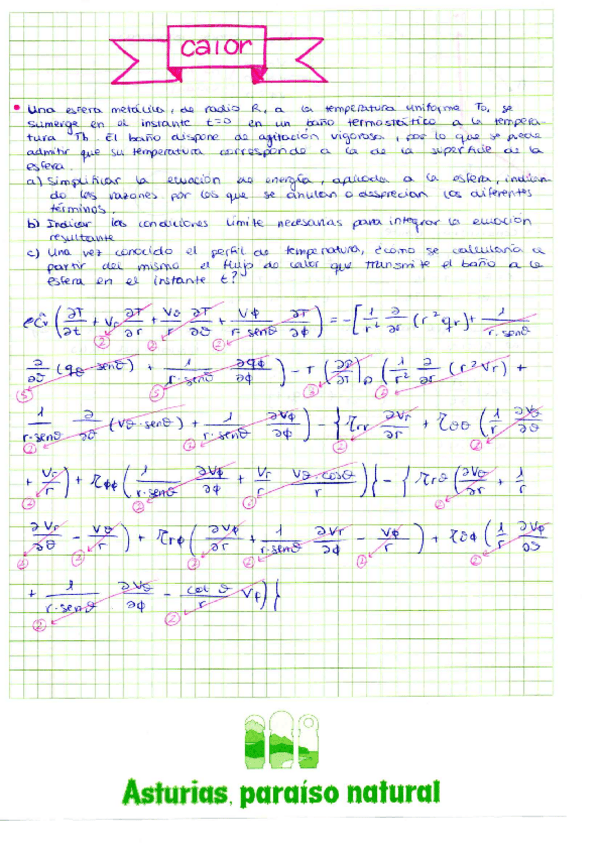 calor
• Una esfera metálica, de radio R, a la temperatura uniforme To, se
sumerge en el instante t=0 en un baño termostático a la tempera-
tura Tb. El baño dispone de agitación vigorosa, por lo que se puede
admitir que su temperatura corresponde a la de la superficie de la
esfera.
a) Simplificar la ecuación de energía, aplicada a la esfera, indican-
do las razones por las que se anulan o desprecian los diferentes
términos.
b) Indicar las condiciones límite necesarias para integrar la ecuación
resultante
c) Una vez conocido el perfil de temperatura, ¿cómo se calcularía a
partir del mismo el flujo de calor que transmite el baño a la
esfera en el instante t?
ρĈv (∂T/∂t + vr ∂T/∂r + vθ/r ∂T/∂θ + vφ/(r·senθ) ∂T/∂φ) = -[1/r² ∂/∂r (r²qr) + 1/(r·senθ)
② ② ②
∂/∂θ (qθ senθ) + 1/(r·senθ) ∂qφ/∂φ) - T (∂p/∂T)ρ (1/r² ∂/∂r (r²vr) +
⑤ ⑤
1/(r·senθ) ∂/∂θ (vθ·senθ) + 1/(r·senθ) ∂vφ/∂φ) - {τrr ∂vr/∂r + τθθ (1/r ∂vθ/∂θ
② ② ② ②
+ vr/r) + τφφ (1/(r·senθ) ∂vφ/∂φ + vr/r vθ·cosθ/r)} - {τrθ (∂vθ/∂r + 1/r
② ② ② ②
∂vr/∂θ - vθ/r) + τrφ (∂vφ/∂r + 1/(r·senθ) ∂vr/∂φ - vφ/r) + τθφ (1/r ∂vφ/∂θ
② ② ② ② ② ②
+ 1/(r·senθ) ∂vθ/∂φ - cot θ/r vφ)}
② ②
Asturias, paraíso natural